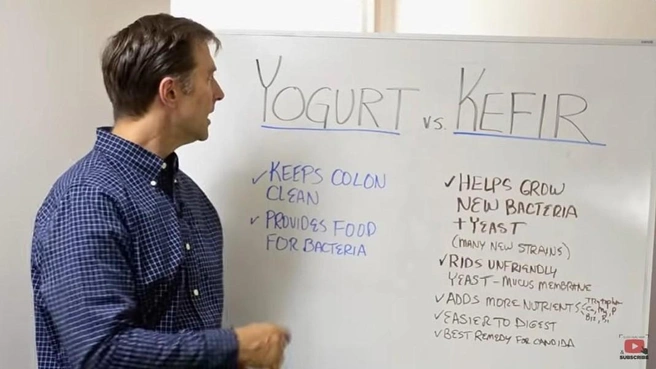 YOGURT vs. KEFIR
✓ KEEPS COLON
CLEAN
✓ PROVIDES FOOD
FOR BACTERIA
✓ HELPS GROW
NEW BACTERIA
+ YEAST
(MANY NEW STRAINS)
✓ RIDS UNFRIENDLY
YEAST - MUCUS MEMBRANE
✓ ADDS MORE NUTRIENTS
✓ EASIER TO DIGEST
✓ BEST REMEDY FOR CANDIDA
SUBSCRIBE